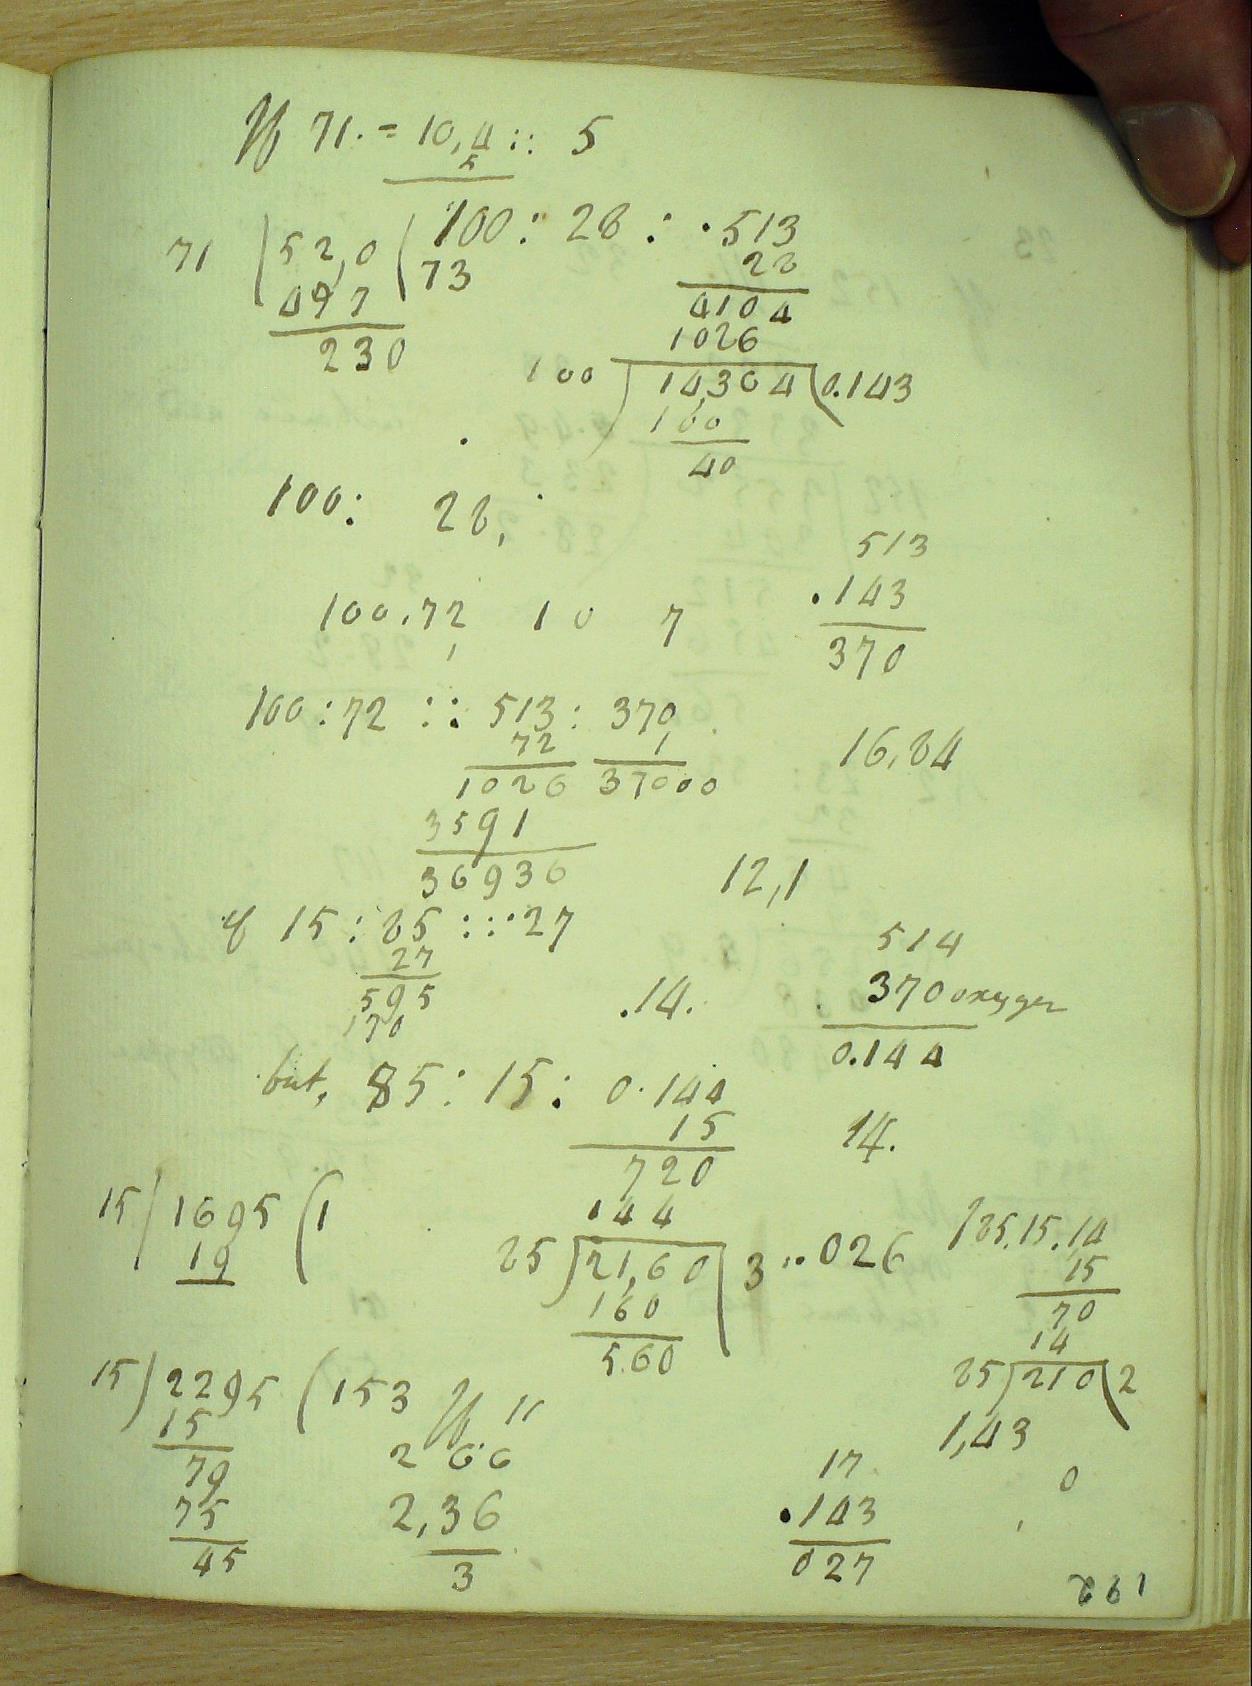 If 71. = 10,4 :: 5
5
71 ( 52,0 ( 73
497
230
100 : 28 : .513
28
4104
1026
100 ) 14,304 ( 0.143
100
40
100: 28,
513
.143
370
100.72, 10 7
100 : 72 :: 513 : 370
72 1
1026 37000
3591
36936
16,84
12,1
if 15 : 85 ::: 27
27
595
170
.14.
514
370 oxygen
0.144
but, 85 : 15 : 0.144
15
720
144
85 ) 21,60 ( 3 .. 026
160
5.60
14.
15 ) 1695 ( 1
19
/85.15.14
15
70
14
85 ) 210 ( 2
1,43
0
15 ) 2295 ( 153
15
79
75
45
If 11
2 66
2,36
3
17
.143
027